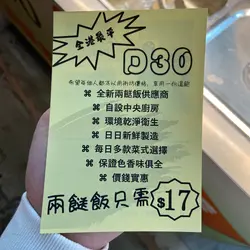 全港最平
D30
希望每個人都可以用街坊價錢，享用一餐溫飽
⌘ 全新兩餸飯供應商
⌘ 自設中央廚房
⌘ 環境乾淨衛生
⌘ 日日新鮮製造
⌘ 每日多款菜式選擇
⌘ 保證色香味俱全
⌘ 價錢實惠
兩餸飯只需 $17